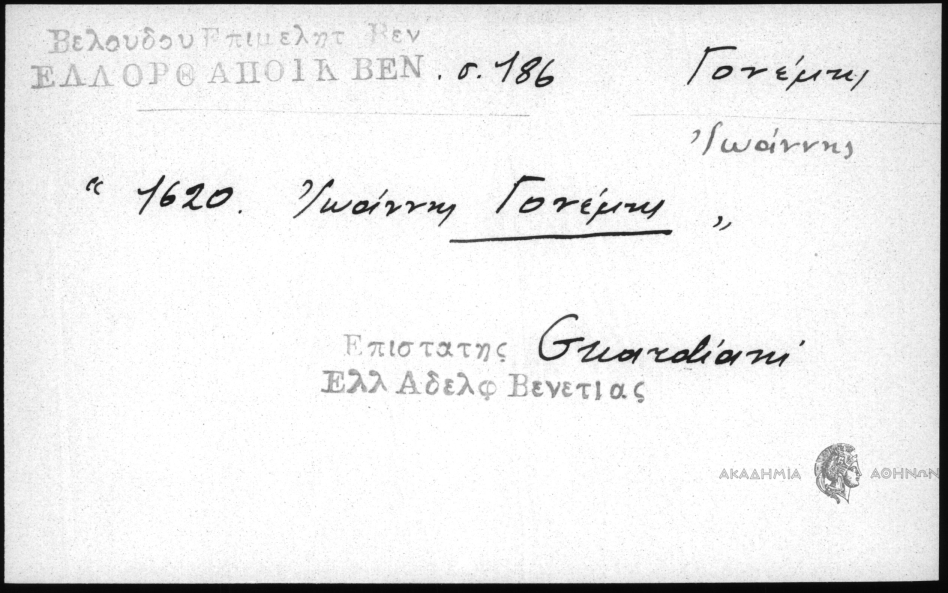 Βελουδου Επιμελητ Βεν
ΕΛΛΟΡΘ ΑΠΟΙΚ ΒΕΝ . σ. 186 Γονέμης
Ἰωάννης
“ 1620. Ἰωάννης Γονέμης „
Επιστατης Guardiani
Ελλ Αδελφ Βενετιας
ΑΚΑΔΗΜΙΑ ΑΘΗΝΩΝ